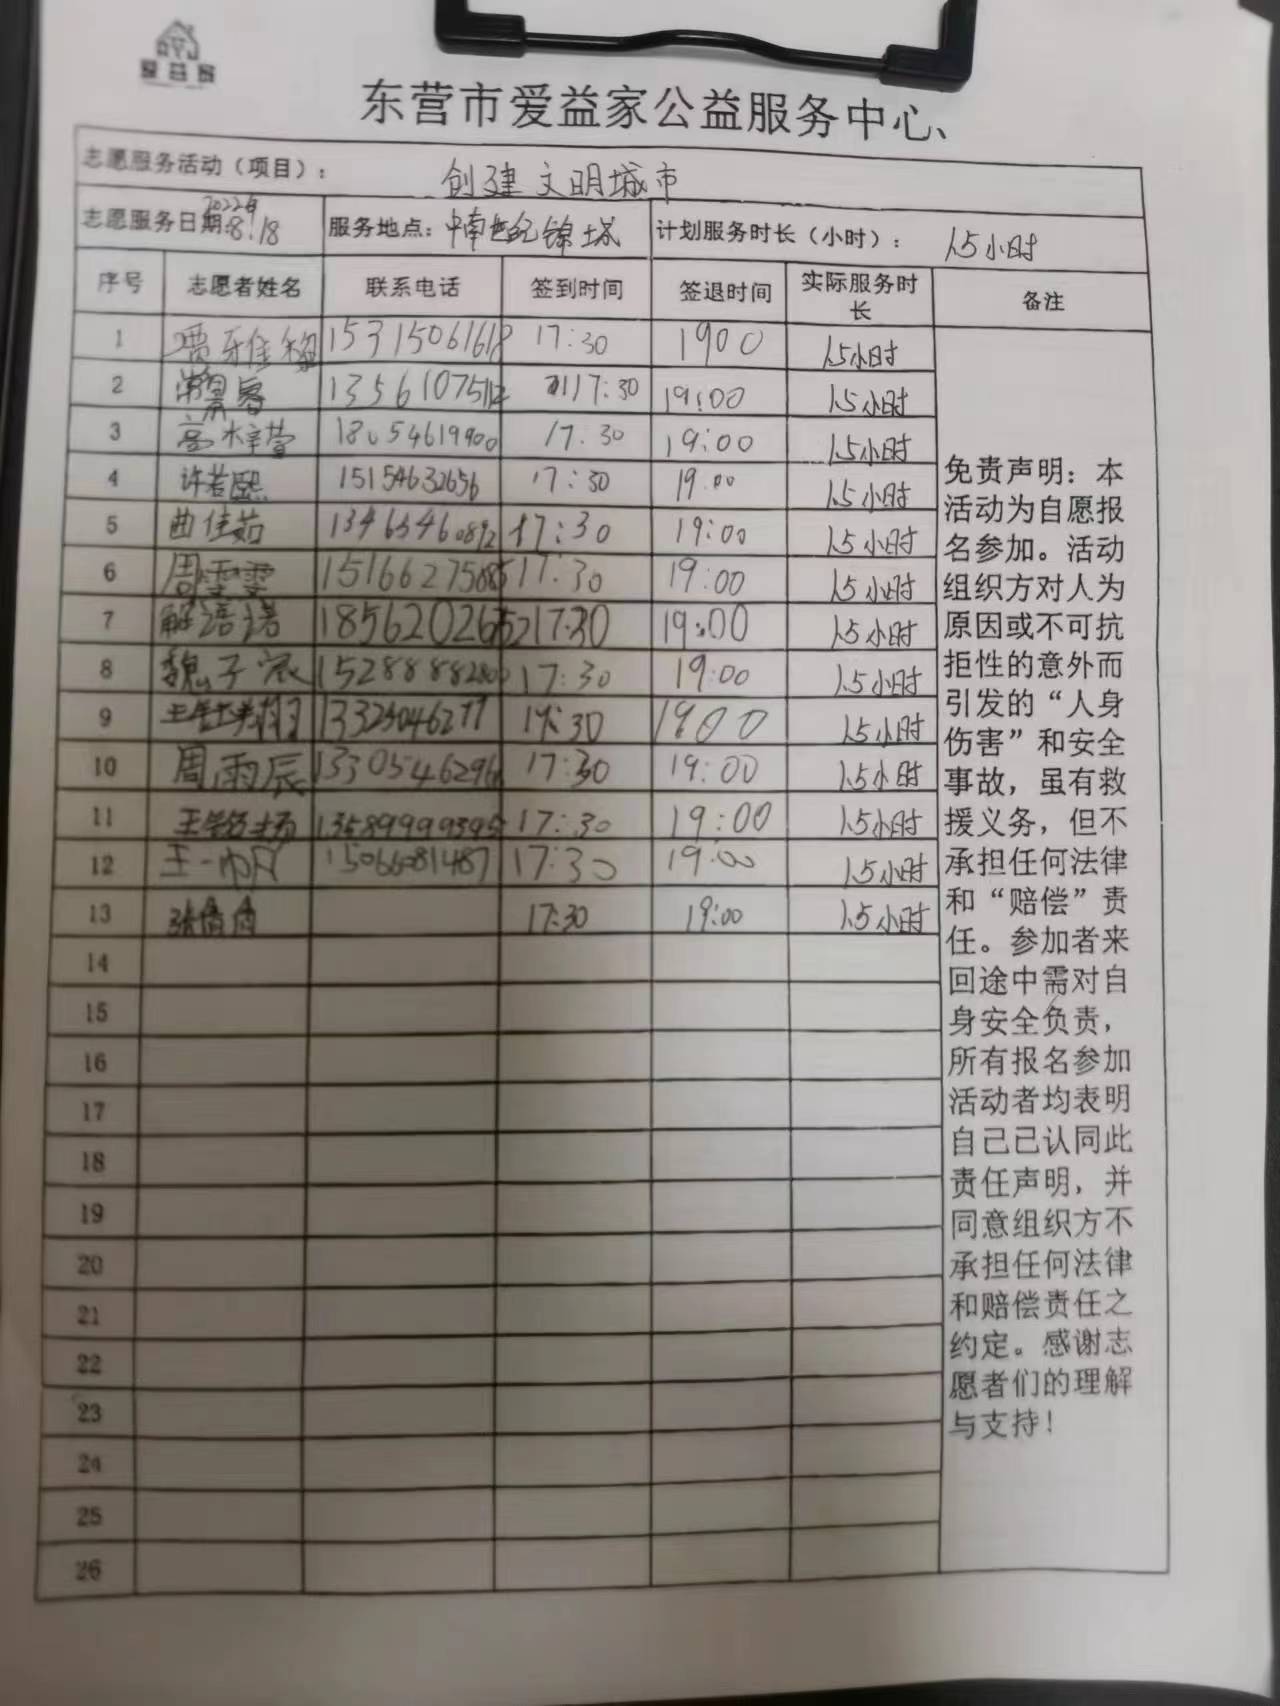 爱益家
东营市爱益家公益服务中心、
志愿服务活动（项目）： 创建文明城市
志愿服务日期: 2022年 8.18 服务地点: 中南世纪锦城 计划服务时长（小时）： 1.5小时
序号 志愿者姓名 联系电话 签到时间 签退时间 实际服务时长 备注
1 15315061618 17:30 1900 1.5小时
2 17:30 19:00 1.5小时
3 18054619900 17.30 19:00 1.5小时
4 许若熙 15154632656 17:30 19:00 1.5小时
5 曲佳茹 13465460892 17:30 19:00 1.5小时
6 周雯雯 17:30 19:00 1.5小时
7 解语诺 17:30 19:00 1.5小时
8 魏子宸 17:30 19:00 1.5小时
9 19:30 1900 1.5小时
10 周雨辰 17:30 19:00 1.5小时
11 17:30 19:00 1.5小时
12 王一帆 15066081487 17:30 19:00 1.5小时
13 17:30 19:00 1.5小时
14
15
16
17
18
19
20
21
22
23
24
25
26
免责声明：本
活动为自愿报
名参加。活动
组织方对人为
原因或不可抗
拒性的意外而
引发的“人身
伤害”和安全
事故，虽有救
援义务，但不
承担任何法律
和“赔偿”责
任。参加者来
回途中需对自
身安全负责，
所有报名参加
活动者均表明
自己已认同此
责任声明，并
同意组织方不
承担任何法律
和赔偿责任之
约定。感谢志
愿者们的理解
与支持！